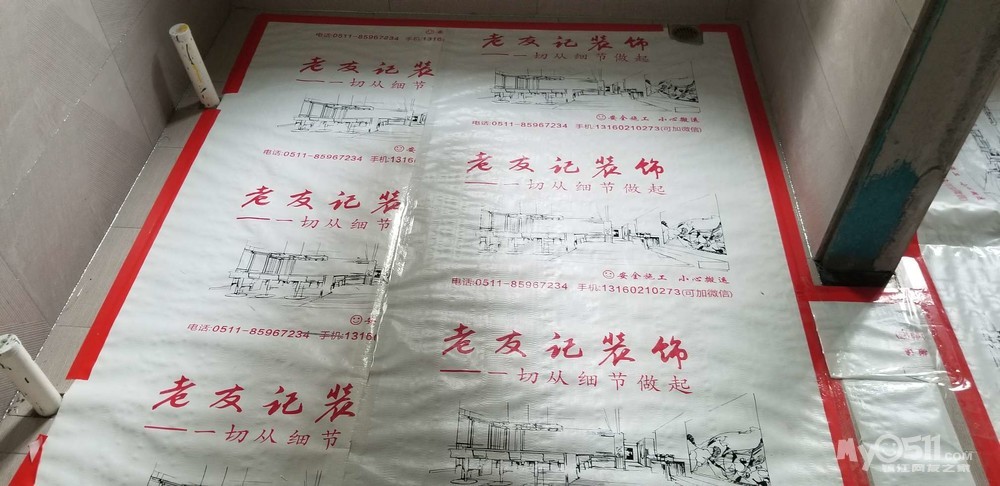 电话:0511-85967234 手机:1316
老友记装
——一切从细节
电话:0511-85967234 手机:1316
老友记装
——一切从细节
电话:0511-85967234 手机:1316
老友记装
——一切从细节
老友记装饰
——一切从细节做起
安全施工 小心搬运
电话:0511-85967234 手机:13160210273(可加微信)
老友记装饰
——一切从细节做起
安全施工 小心搬运
电话:0511-85967234 手机:13160210273(可加微信)
老友记装饰
——一切从细节做起
My0511.COM
镇江网友之家